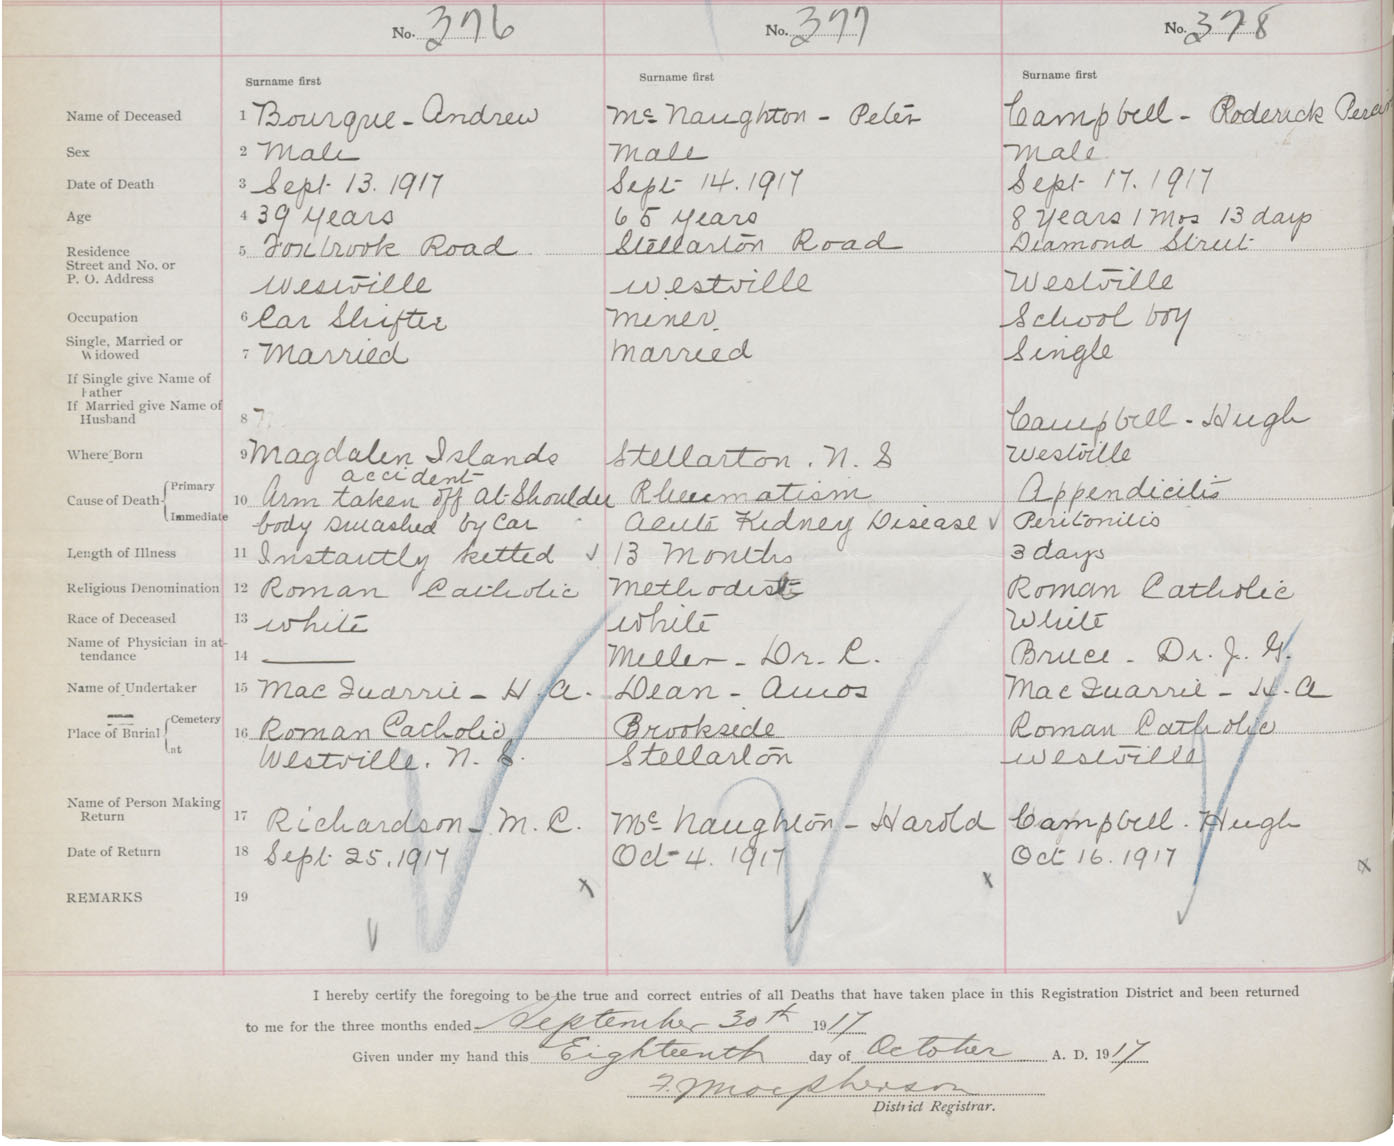 No. 376 No. 377 No. 378
Surname first Surname first Surname first
Name of Deceased 1 Bourque - Andrew Mc Naughton - Peter Campbell - Roderick
Sex 2 Male Male Male
Date of Death 3 Sept 13. 1917 Sept 14. 1917 Sept 17. 1917
Age 4 39 years 65 years 8 years 1 Mos 13 days
Residence 5 Foxbrook Road Stellarton Road Diamond Street
Street and No. or
P. O. Address Westville Westville Westville
Occupation 6 Car Shifter Miner School boy
Single, Married or
Widowed 7 Married Married Single
If Single give Name of
Father
If Married give Name of
Husband 8 Campbell - Hugh
Where Born 9 Magdalen Islands Stellarton. N. S Westville
accident
Cause of Death Primary 10 Arm taken off at Shoulder Rheumatism Appendicitis
Immediate body smashed by Car Acute Kidney Disease Peritonitis
Length of Illness 11 Instantly killed 13 Months 3 days
Religious Denomination 12 Roman Catholic Methodist Roman Catholic
Race of Deceased 13 White White White
Name of Physician in at-
tendance 14 Miller - Dr. C. Bruce - Dr. J. G.
Name of Undertaker 15 MacQuarrie - H. A. Dean - Amos MacQuarrie - H. A
Place of Burial Cemetery 16 Roman Catholic Brookside Roman Catholic
at Westville. N. S. Stellarton Westville
Name of Person Making
Return 17 Richardson - M. C. Mc Naughton - Harold Campbell - Hugh
Date of Return 18 Sept 25. 1917 Oct 4. 1917 Oct 16. 1917
REMARKS 19
I hereby certify the foregoing to be the true and correct entries of all Deaths that have taken place in this Registration District and been returned
to me for the three months ended September 30th 1917
Given under my hand this Eighteenth day of October A. D. 1917
F. Macpherson
District Registrar.